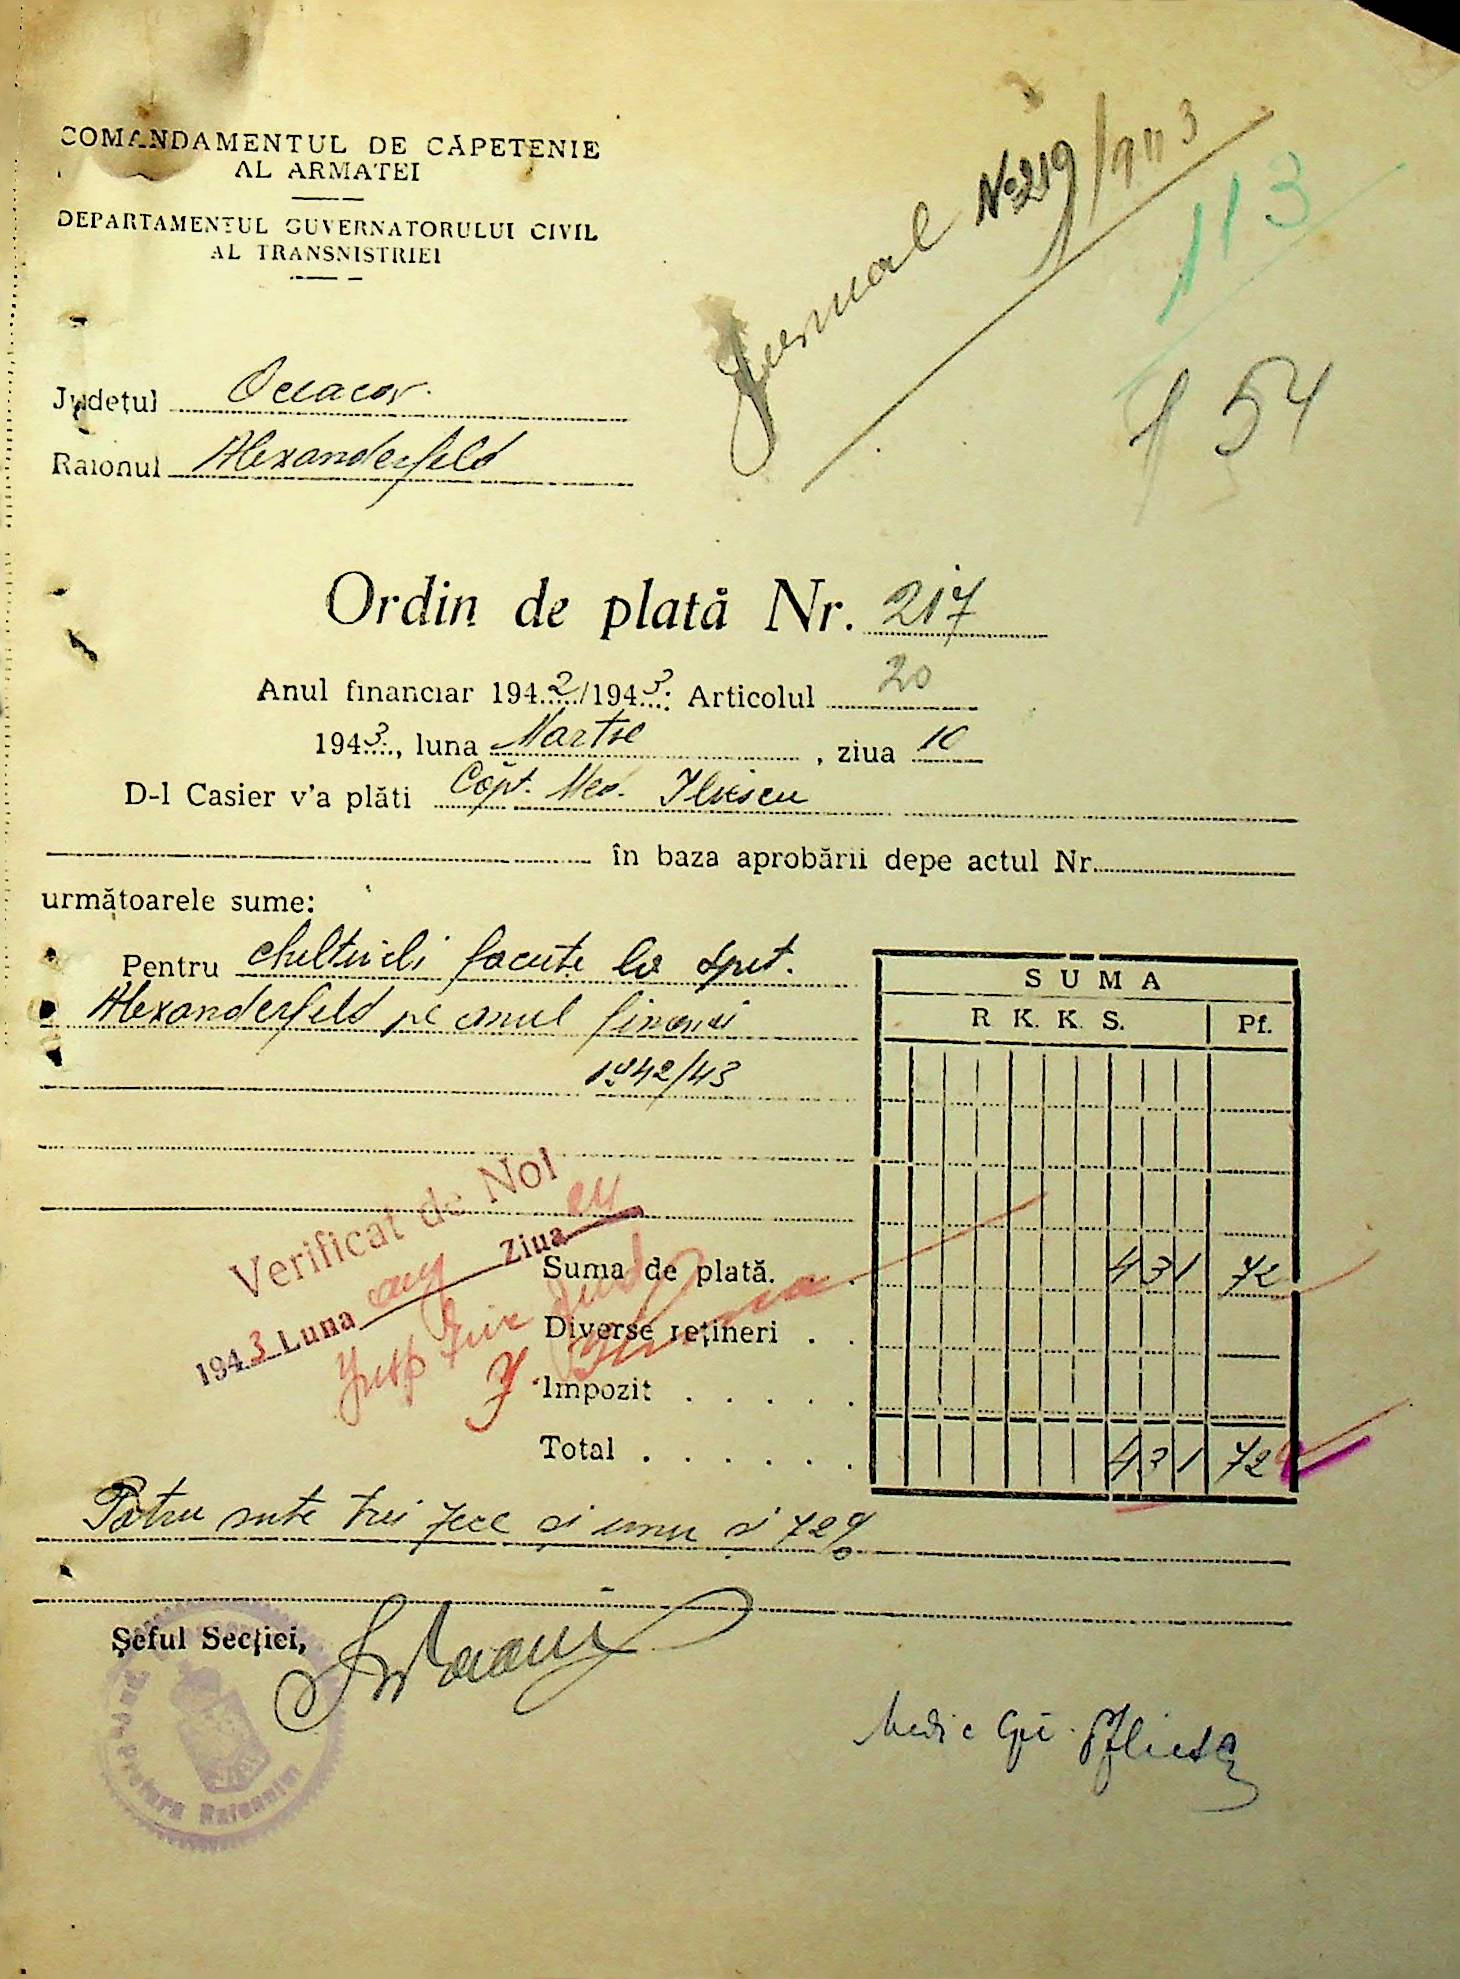 COMANDAMENTUL DE CĂPETENIE
AL ARMATEI
DEPARTAMENTUL GUVERNATORULUI CIVIL
AL TRANSNISTRIEI
Jurnal No 219/943
113
154
Județul Oceacov.
Raionul Alexanderfeld
Ordin de plată Nr. 217
Anul financiar 1942/1943: Articolul 20
1943, luna Martie, ziua 10
D-l Casier v'a plăti Căpt. Med. Iliescu
în baza aprobării depe actul Nr.
următoarele sume:
Pentru cheltuieli facute la spit.
Alexanderfeld pe anul financi
1942/43
SUMA
R. K. K. S. Pf.
Verificat de Noi
1943 Luna aug Ziua 24
Suma de plată. 431 72
Diverse rețineri
Impozit
Total 431 72
Patru sute trei zece și unu și 72%
Șeful Secției,
Medic Cpt. Iliescu
Pretura Raionului